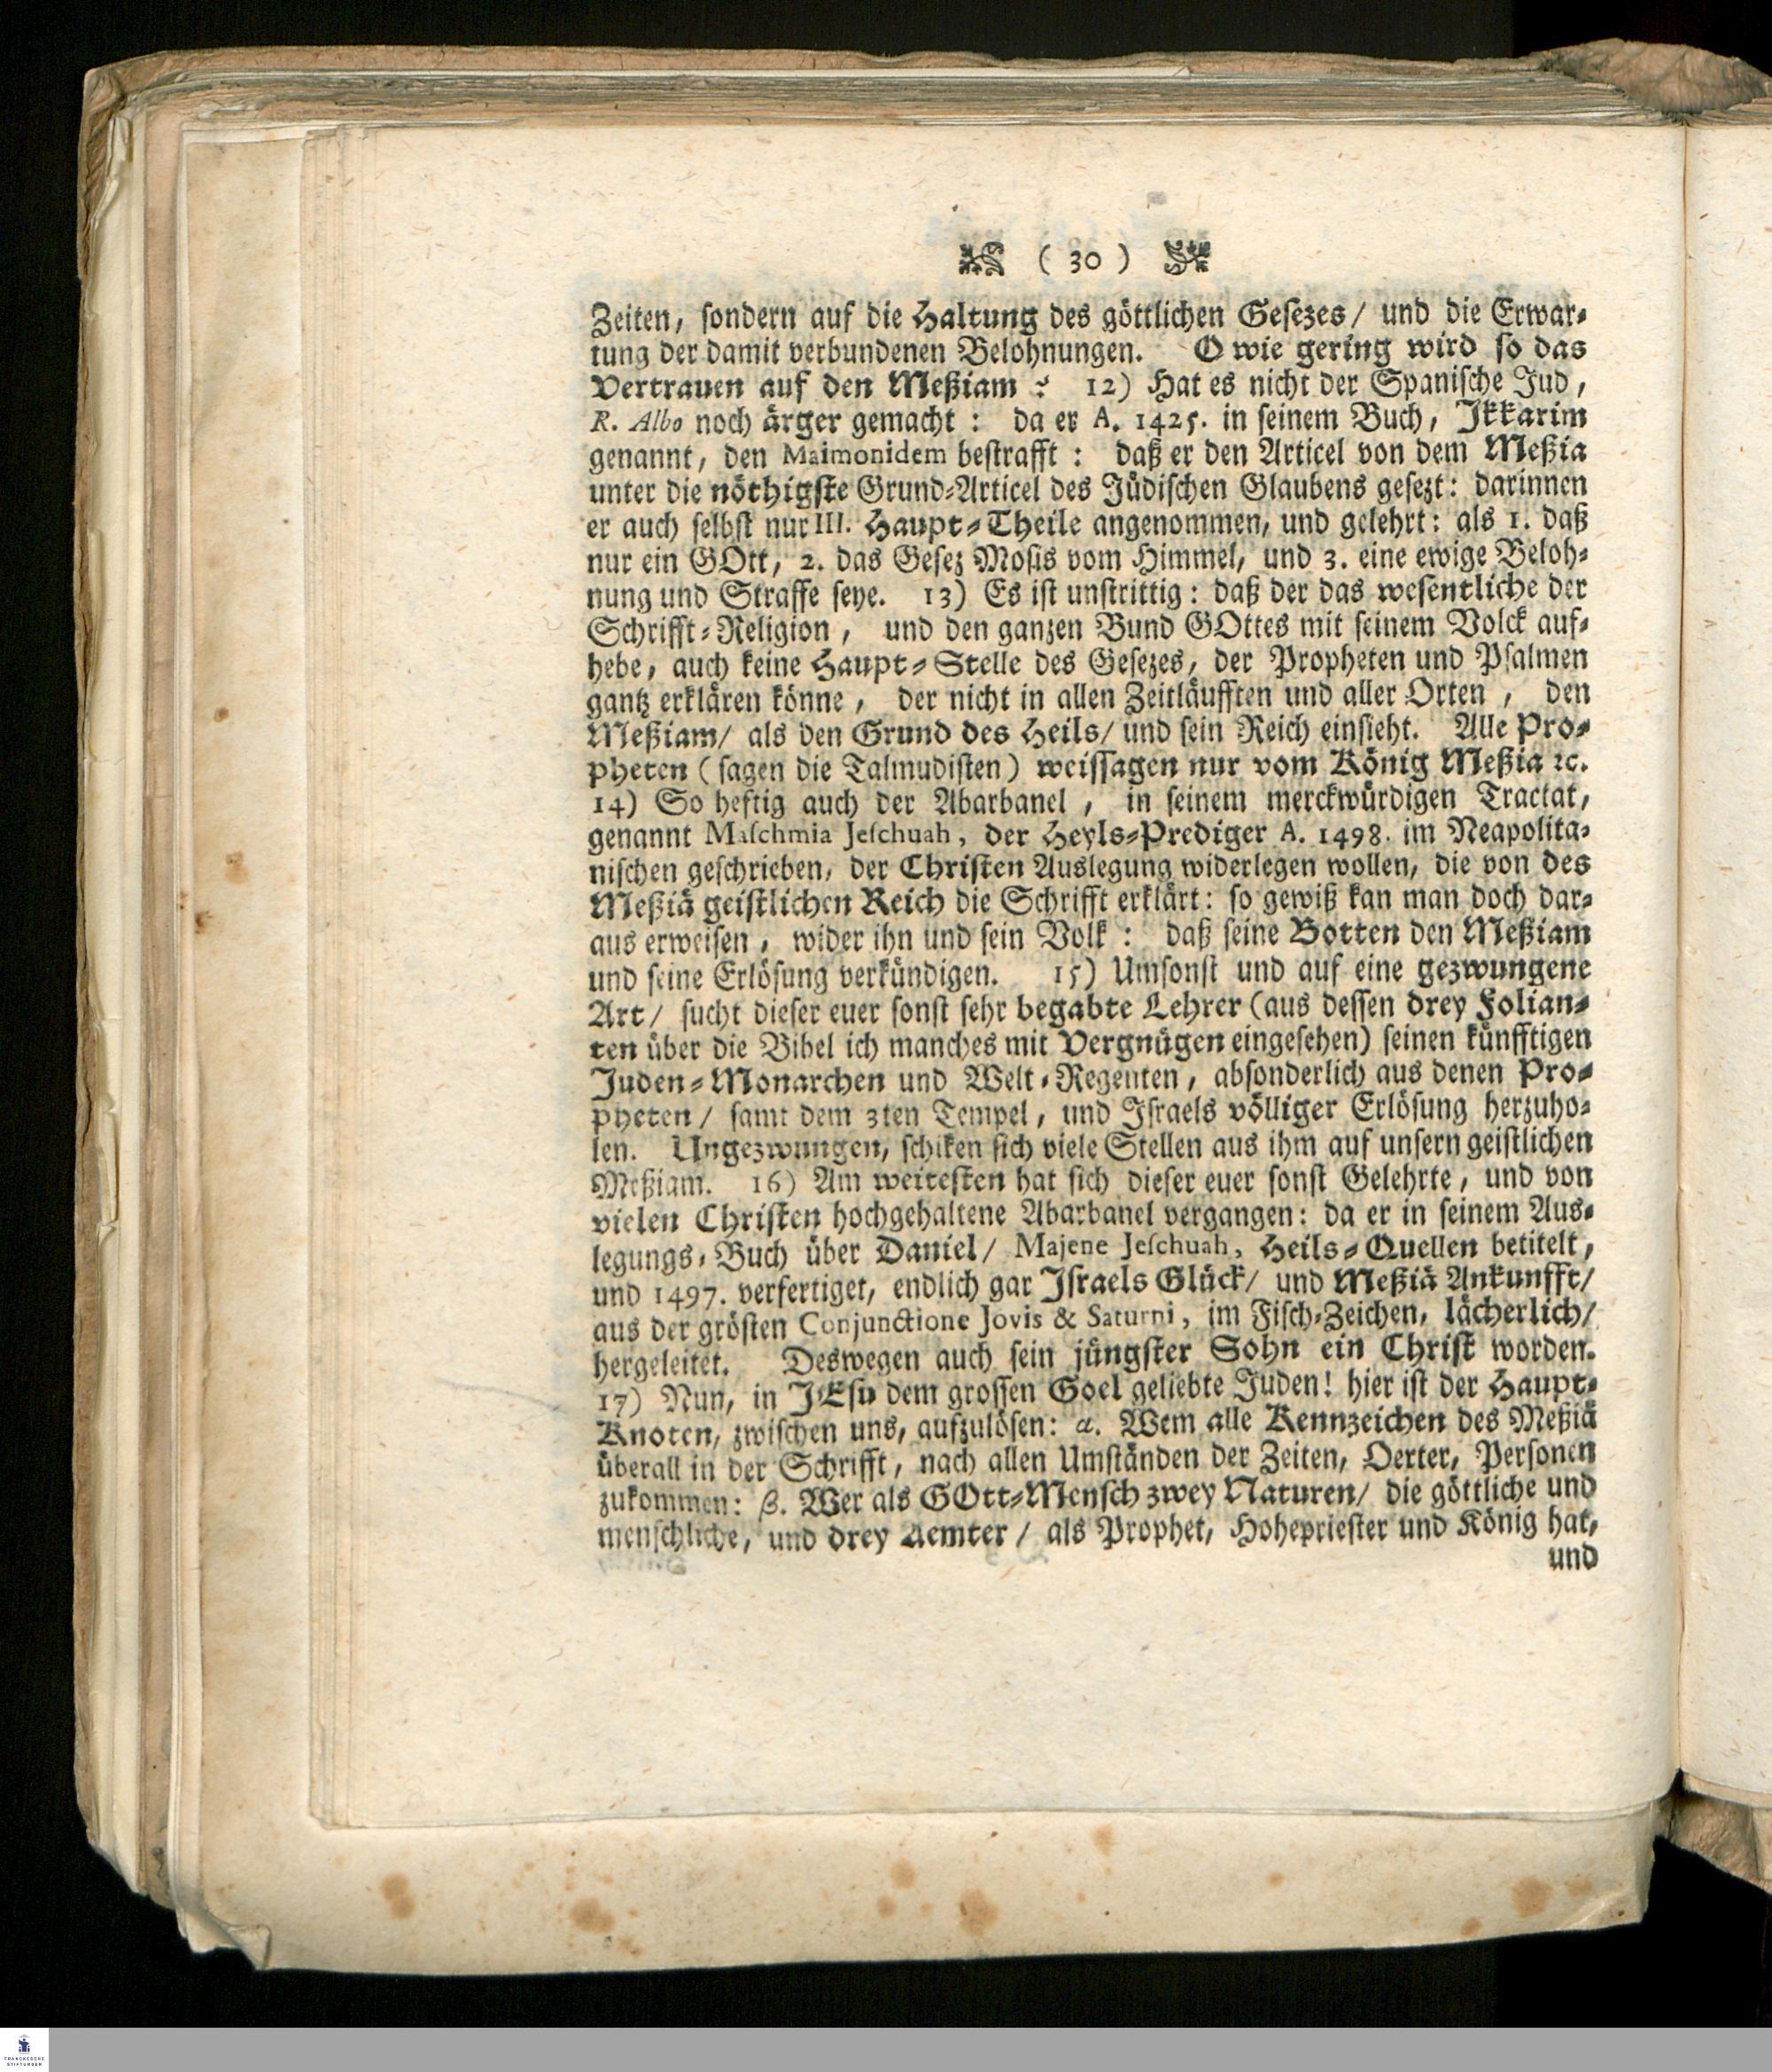 ( 30 )
Zeiten, sondern auf die Haltung des göttlichen Gesezes/ und die Erwar-
tung der damit verbundenen Belohnungen. O wie gering wird so das
Vertrauen auf den Meßiam ? 12) Hat es nicht der Spanische Jud,
R. Albo noch ärger gemacht : da er A. 1425. in seinem Buch, Ikkarim
genannt, den Maimonidem bestrafft : daß er den Articel von dem Meßia
unter die nöthigste Grund-Articel des Jüdischen Glaubens gesezt: darinnen
er auch selbst nur III. Haupt-Theile angenommen, und gelehrt: als 1. daß
nur ein GOtt, 2. das Gesez Mosis vom Himmel, und 3. eine ewige Beloh-
nung und Straffe seye. 13) Es ist unstrittig: daß der das wesentliche der
Schrifft-Religion, und den ganzen Bund GOttes mit seinem Volck auf-
hebe, auch keine Haupt-Stelle des Gesezes, der Propheten und Psalmen
gantz erklären könne, der nicht in allen Zeitläufften und aller Orten, den
Meßiam/ als den Grund des Heils/ und sein Reich einsieht. Alle Pro-
pheten (sagen die Talmudisten) weissagen nur vom König Meßia ꝛc.
14) So heftig auch der Abarbanel, in seinem merckwürdigen Tractat,
genannt Maſchmia Jeſchuah, der Heyls-Prediger A. 1498. im Neapolita-
nischen geschrieben, der Christen Auslegung widerlegen wollen, die von des
Meßiä geistlichen Reich die Schrifft erklärt: so gewiß kan man doch dar-
aus erweisen, wider ihn und sein Volk : daß seine Botten den Meßiam
und seine Erlösung verkündigen. 15) Umsonst und auf eine gezwungene
Art/ sucht dieser euer sonst sehr begabte Lehrer (aus dessen drey Folian-
ten über die Bibel ich manches mit Vergnügen eingesehen) seinen künfftigen
Juden-Monarchen und Welt-Regenten, absonderlich aus denen Pro-
pheten/ samt dem 3ten Tempel, und Israels völliger Erlösung herzuho-
len. Ungezwungen, schiken sich viele Stellen aus ihm auf unsern geistlichen
Meßiam. 16) Am weitesten hat sich dieser euer sonst Gelehrte, und von
vielen Christen hochgehaltene Abarbanel vergangen: da er in seinem Aus-
legungs-Buch über Daniel/ Majene Jeſchuah, Heils-Quellen betitelt,
und 1497. verfertiget, endlich gar Israels Glück/ und Meßiä Ankunfft/
aus der grösten Conjunctione Jovis & Saturni, im Fisch-Zeichen, lächerlich/
hergeleitet. Deswegen auch sein jüngster Sohn ein Christ worden.
17) Nun, in JEsu dem grossen Goel geliebte Juden! hier ist der Haupt-
Knoten, zwischen uns, aufzulösen: α. Wem alle Kennzeichen des Meßiä
überall in der Schrifft, nach allen Umständen der Zeiten, Oerter, Personen
zukommen: β. Wer als GOtt-Mensch zwey Naturen/ die göttliche und
menschliche, und drey Aemter/ als Prophet, Hohepriester und König hat,
und
FRANCKESCHE
STIFTUNGEN